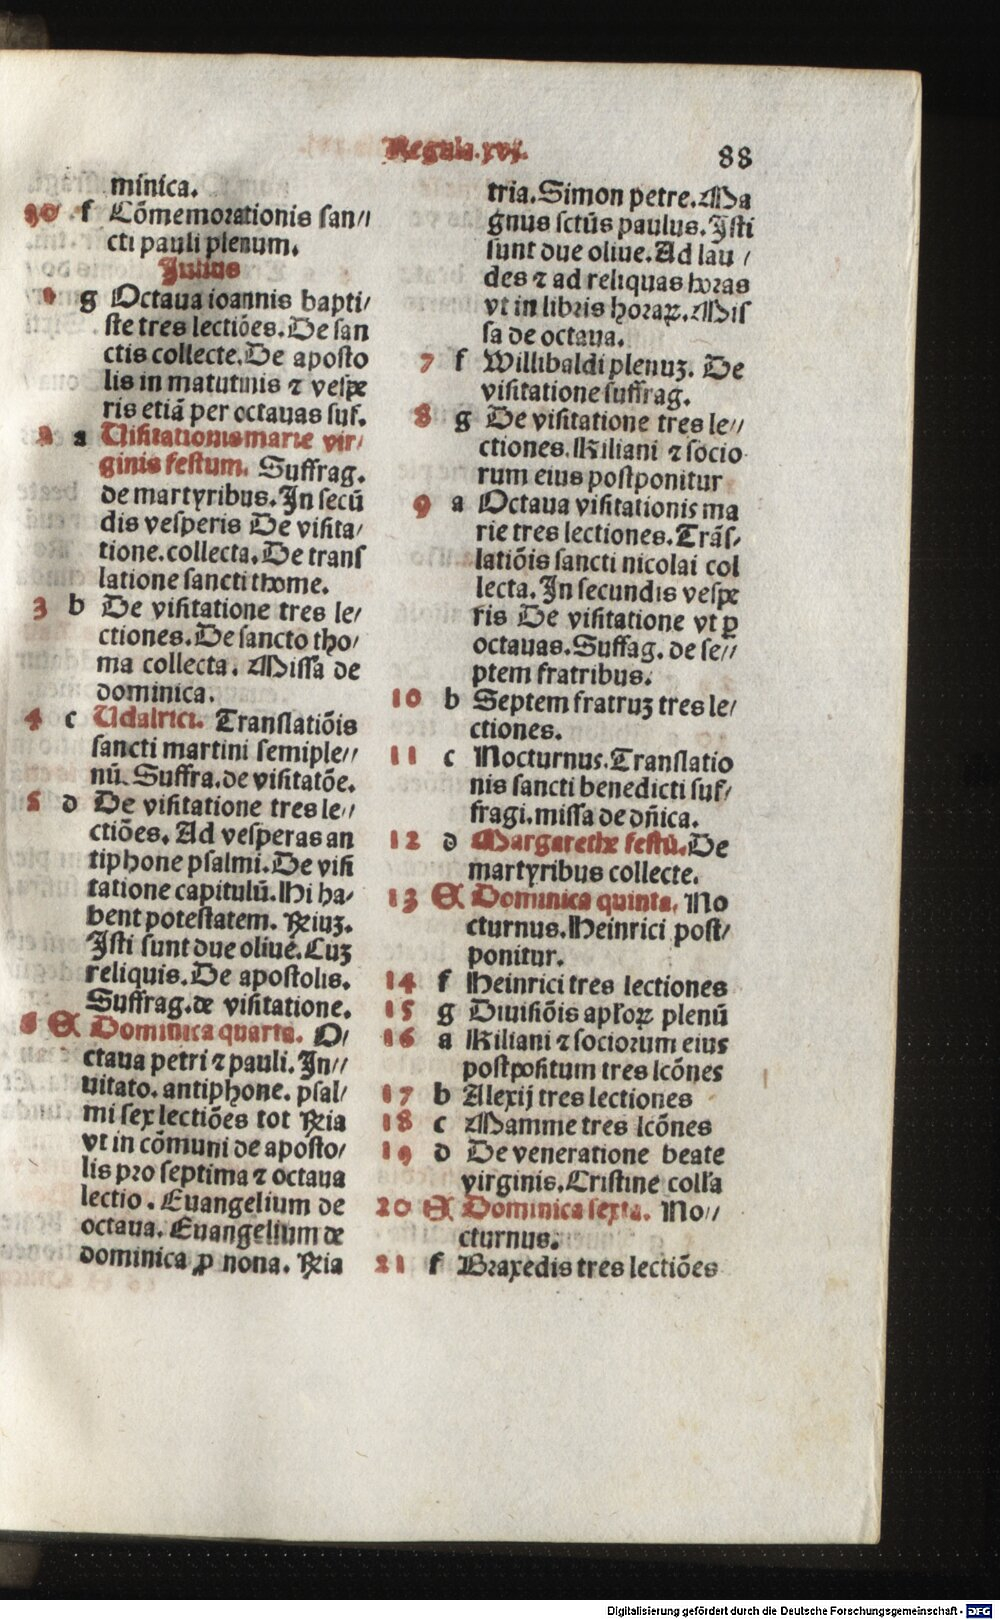 Regula.xvj.
88
minica.
30 f Cōmemorationis san//
cti pauli plenum.
Julius
1 g Octaua ioannis bapti/
ste tres lectiōes. De san
ctis collecte. De aposto
lis in matutinis ⁊ vespe
ris etiā per octauas suf.
2 a Uisitationis marie vir/
ginis festum. Suffrag.
de martyribus. In secū
dis vesperis De visita/
tione. collecta. De trans
latione sancti thome.
3 b De visitatione tres le/
ctiones. De sancto tho/
ma collecta. Missa de
dominica.
4 c Udalrici. Translatiōis
sancti martini semiple//
nū. Suffra. de visitatōe.
5 d De visitatione tres le//
ctiōes. Ad vesperas an
tiphone psalmi. De visi
tatione capitulū. Hi ha/
bent potestatem. ℞iuꝫ.
Isti sunt due oliue. Cuꝫ
reliquis. De apostolis.
Suffrag. de visitatione.
6 Dominica quarta. O/
ctaua petri ⁊ pauli. In//
uitato. antiphone. psal/
mi sex lectiōes tot ℞ia
vt in cōmuni de aposto/
lis pro septima ⁊ octaua
lectio. Euangelium de
octaua. Euangelium de
dominica ꝓ nona. ℞ia
tria. Simon petre. Ma
gnus sctūs paulus. Isti
sunt due oliue. Ad lau/
des ⁊ ad reliquas horas
vt in libris horaꝝ. Mis
sa de octaua.
7 f Willibaldi plenuꝫ. De
visitatione suffrag.
8 g De visitatione tres le//
ctiones. Kiliani ⁊ socio
rum eius postponitur
9 a Octaua visitationis ma
rie tres lectiones. Trās/
latiōis sancti nicolai col
lecta. In secundis vespe
ris De visitatione vt ꝑ
octauas. Suffag. de se//
ptem fratribus.
10 b Septem fratruꝫ tres le/
ctiones.
11 c Nocturnus. Translatio
nis sancti benedicti suf/
fragi. missa de dn̄ica.
12 d Margarethe festū. De
martyribus collecte.
13 Dominica quinta. No
cturnus. Heinrici post/
ponitur.
14 f Heinrici tres lectiones
15 g Diuisiōis apl'oꝝ plenū
16 a Kiliani ⁊ sociorum eius
postpositum tres lcōnes
17 b Alexij tres lectiones
18 c Mamme tres lcōnes
19 d De veneratione beate
virginis. Cristine coll'a
20 Dominica sexta. No//
cturnus.
21 f Braxedis tres lectiōes
Digitalisierung gefördert durch die Deutsche Forschungsgemeinschaft - DFG